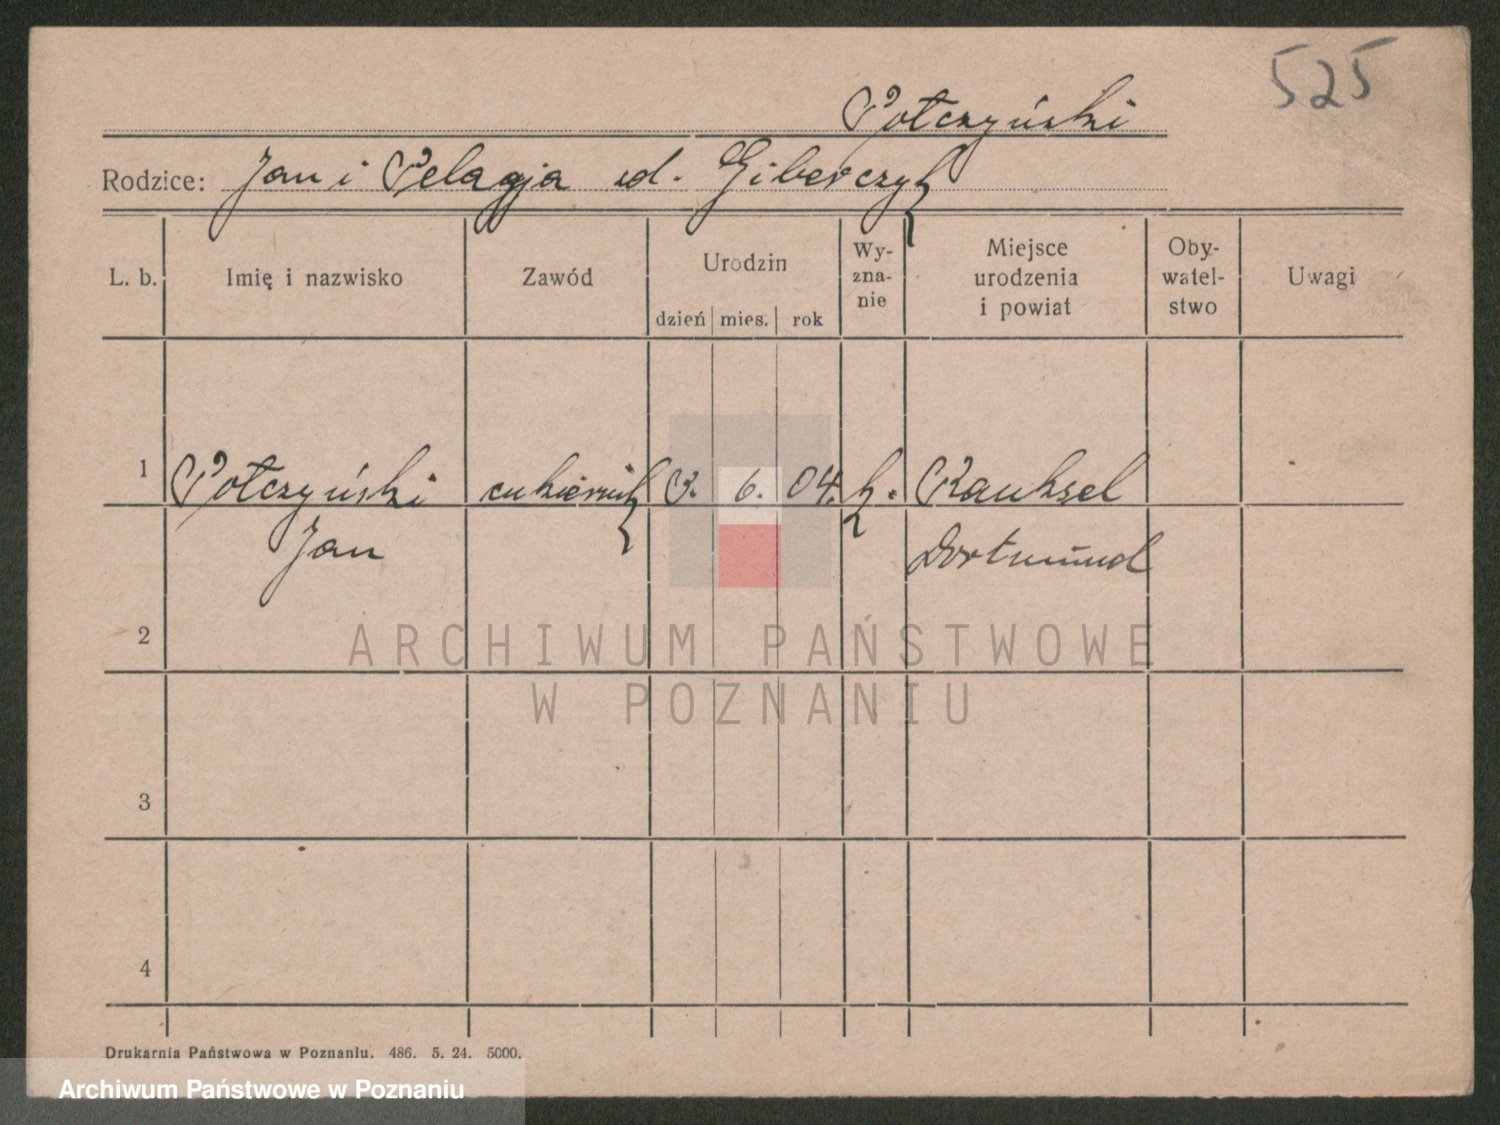 525
Połczyński
Rodzice: Jan i Pelagja zd. Giberczyk
L. b. Imię i nazwisko Zawód Urodzin dzień mies. rok Wy-zna-nie Miejsce urodzenia i powiat Oby-watel-stwo Uwagi
1 Połczyński cukiernik 3. 6. 04. k. Rauksel
Jan Dortmund
2
3
4
Drukarnia Państwowa w Poznaniu. 486. 5. 24. 5000.
ARCHIWUM PAŃSTWOWE
W POZNANIU
Archiwum Państwowe w Poznaniu